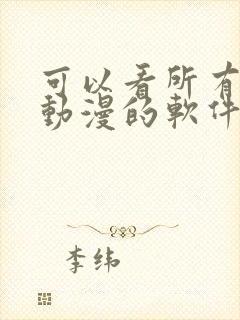 可以看所有
動漫的軟件
李纬